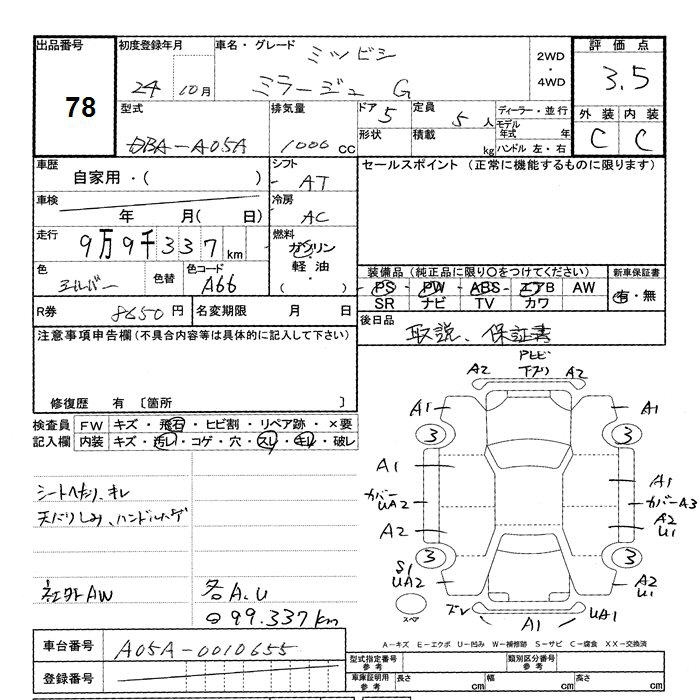 出品番号 初度登録年月 車名・グレード ミツビシ 2WD・4WD 評価点
78 24 10月 ミラージュ G 3.5
型式 排気量 ドア 5 定員 5 人 ディーラー・並行 外装 内装
DBA-A05A 1000 CC 形状 積載 kg モデル年式 年 C C
ハンドル 左・右
車歴 自家用・( ) シフト AT セールスポイント (正常に機能するものに限ります)
車検 年 月( 日) 冷房 AC
走行 9万9千337 km 燃料 ガソリン・軽油・( )
色 シルバー 色替 色コード A66
装備品 (純正品に限り○をつけてください) 新車保証書
PS PW ABS エアB AW 有・無
SR ナビ TV カワ
R券 8650円 名変期限 月 日 後日品 取説、保証書
注意事項申告欄(不具合内容等は具体的に記入して下さい)
修復歴 有 〔箇所 〕
検査員記入欄 FW キズ・飛石・ヒビ割・リペア跡・×要
内装 キズ・汚レ・コゲ・穴・スレ・キレ・破レ
シートへたり、キレ
天バリしみ、ハンドルハゲ
社外AW 各A.U
⊖99.337km
A2 A2
A1 A1
3 3
A1 A1
カバー UA2 カバーA3
A2 A2 U1
3 3
S1 UA2 A2 U1
スペア ズレ A1 UA1
A-キズ E-エクボ U-凹み W-補修跡 S-サビ C-腐食 XX-交換済
車台番号 A05A-0010655
登録番号
型式指定番号 参考 類別区分番号 参考
車庫証明用 参考 長さ cm 幅 cm 高さ cm